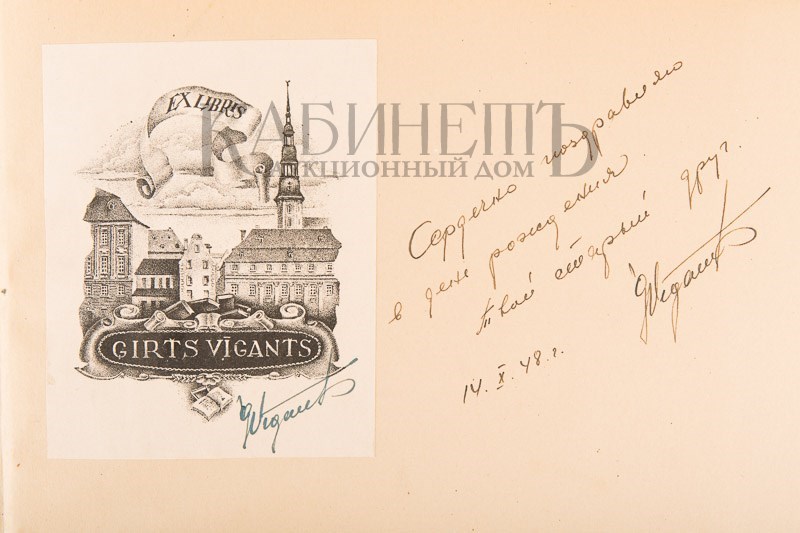 EX LIBRIS
ĢIRTS VĪGANTS
ĢVīgants
КАБИНЕТЪ
АУКЦИОННЫЙ ДОМ
Сердечно поздравляю
в день рождения.
Твой старый друг.
ĢVīgants
14. X. 48. г.